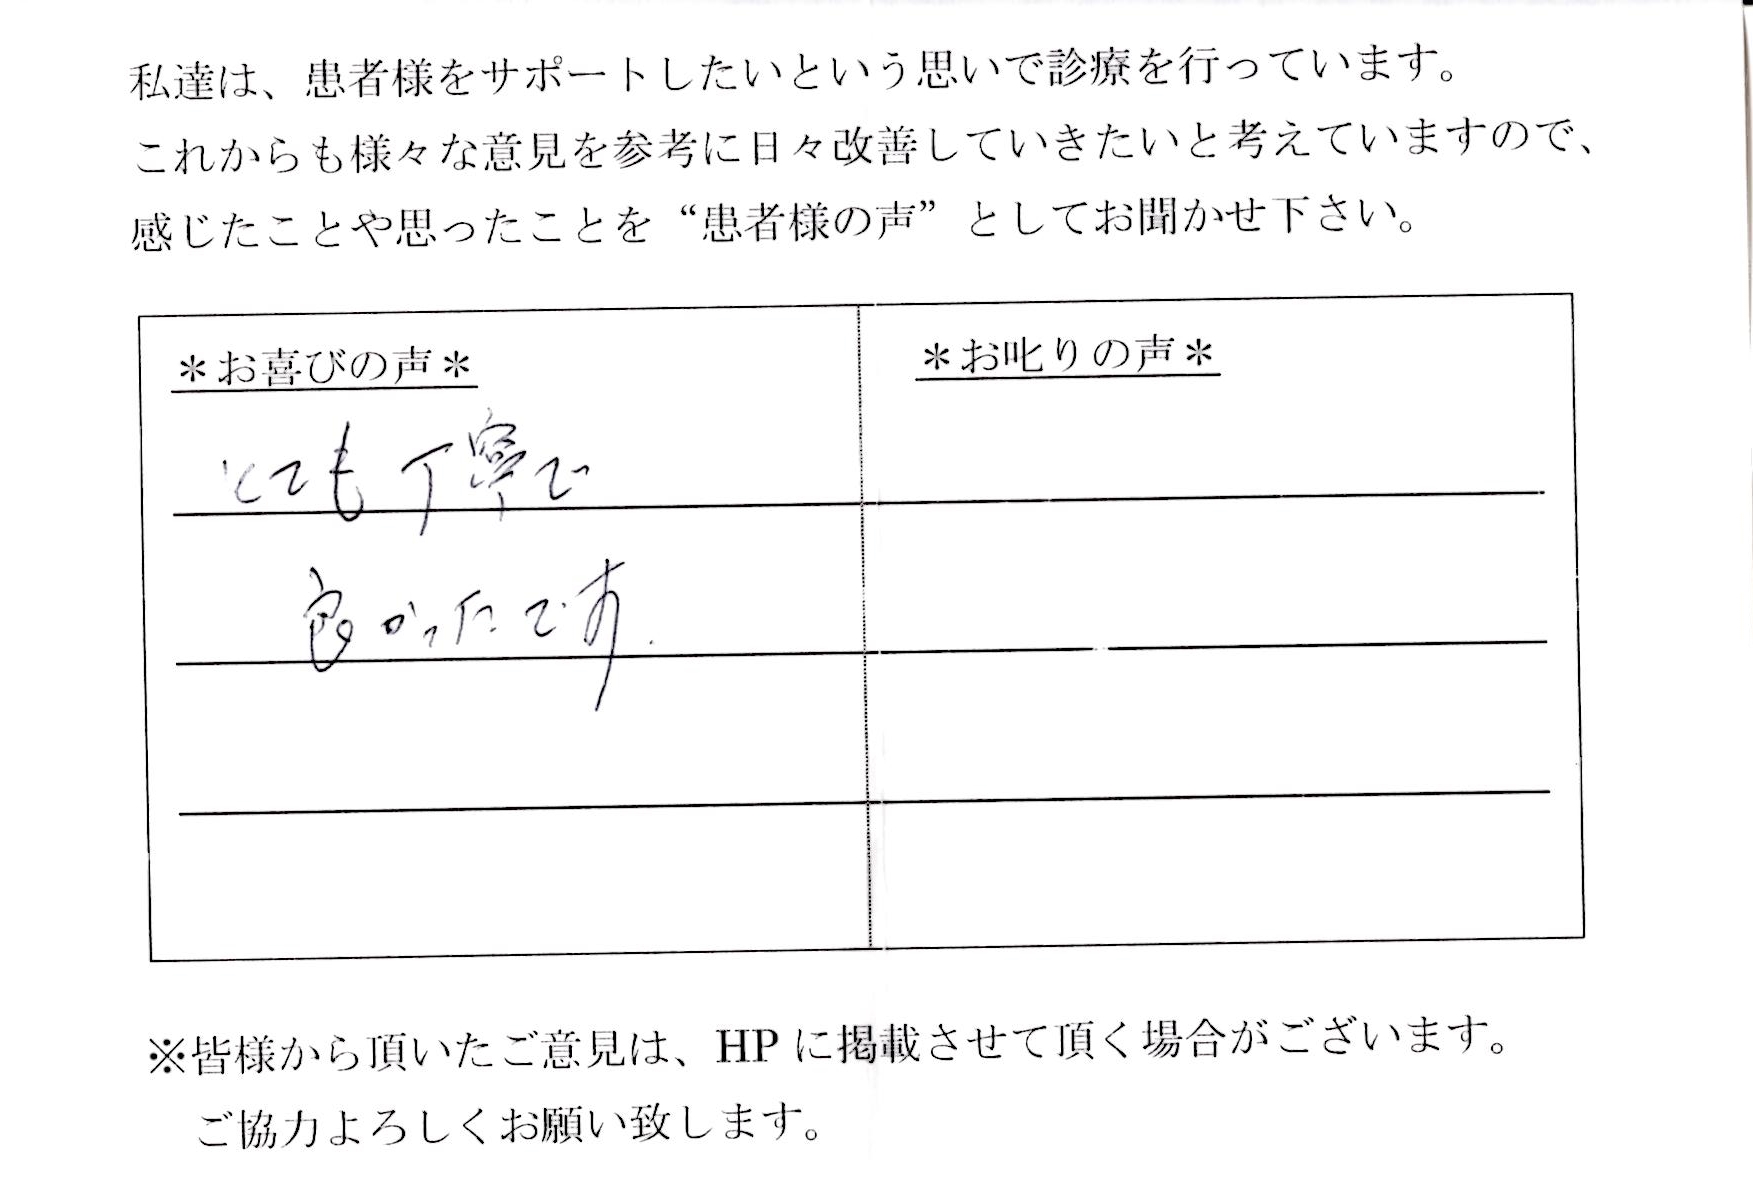 私達は、患者様をサポートしたいという思いで診療を行っています。
これからも様々な意見を参考に日々改善していきたいと考えていますので、
感じたことや思ったことを“患者様の声”としてお聞かせ下さい。
＊お喜びの声＊
とても丁寧で
良かったです.
＊お叱りの声＊
※皆様から頂いたご意見は、HPに掲載させて頂く場合がございます。
ご協力よろしくお願い致します。